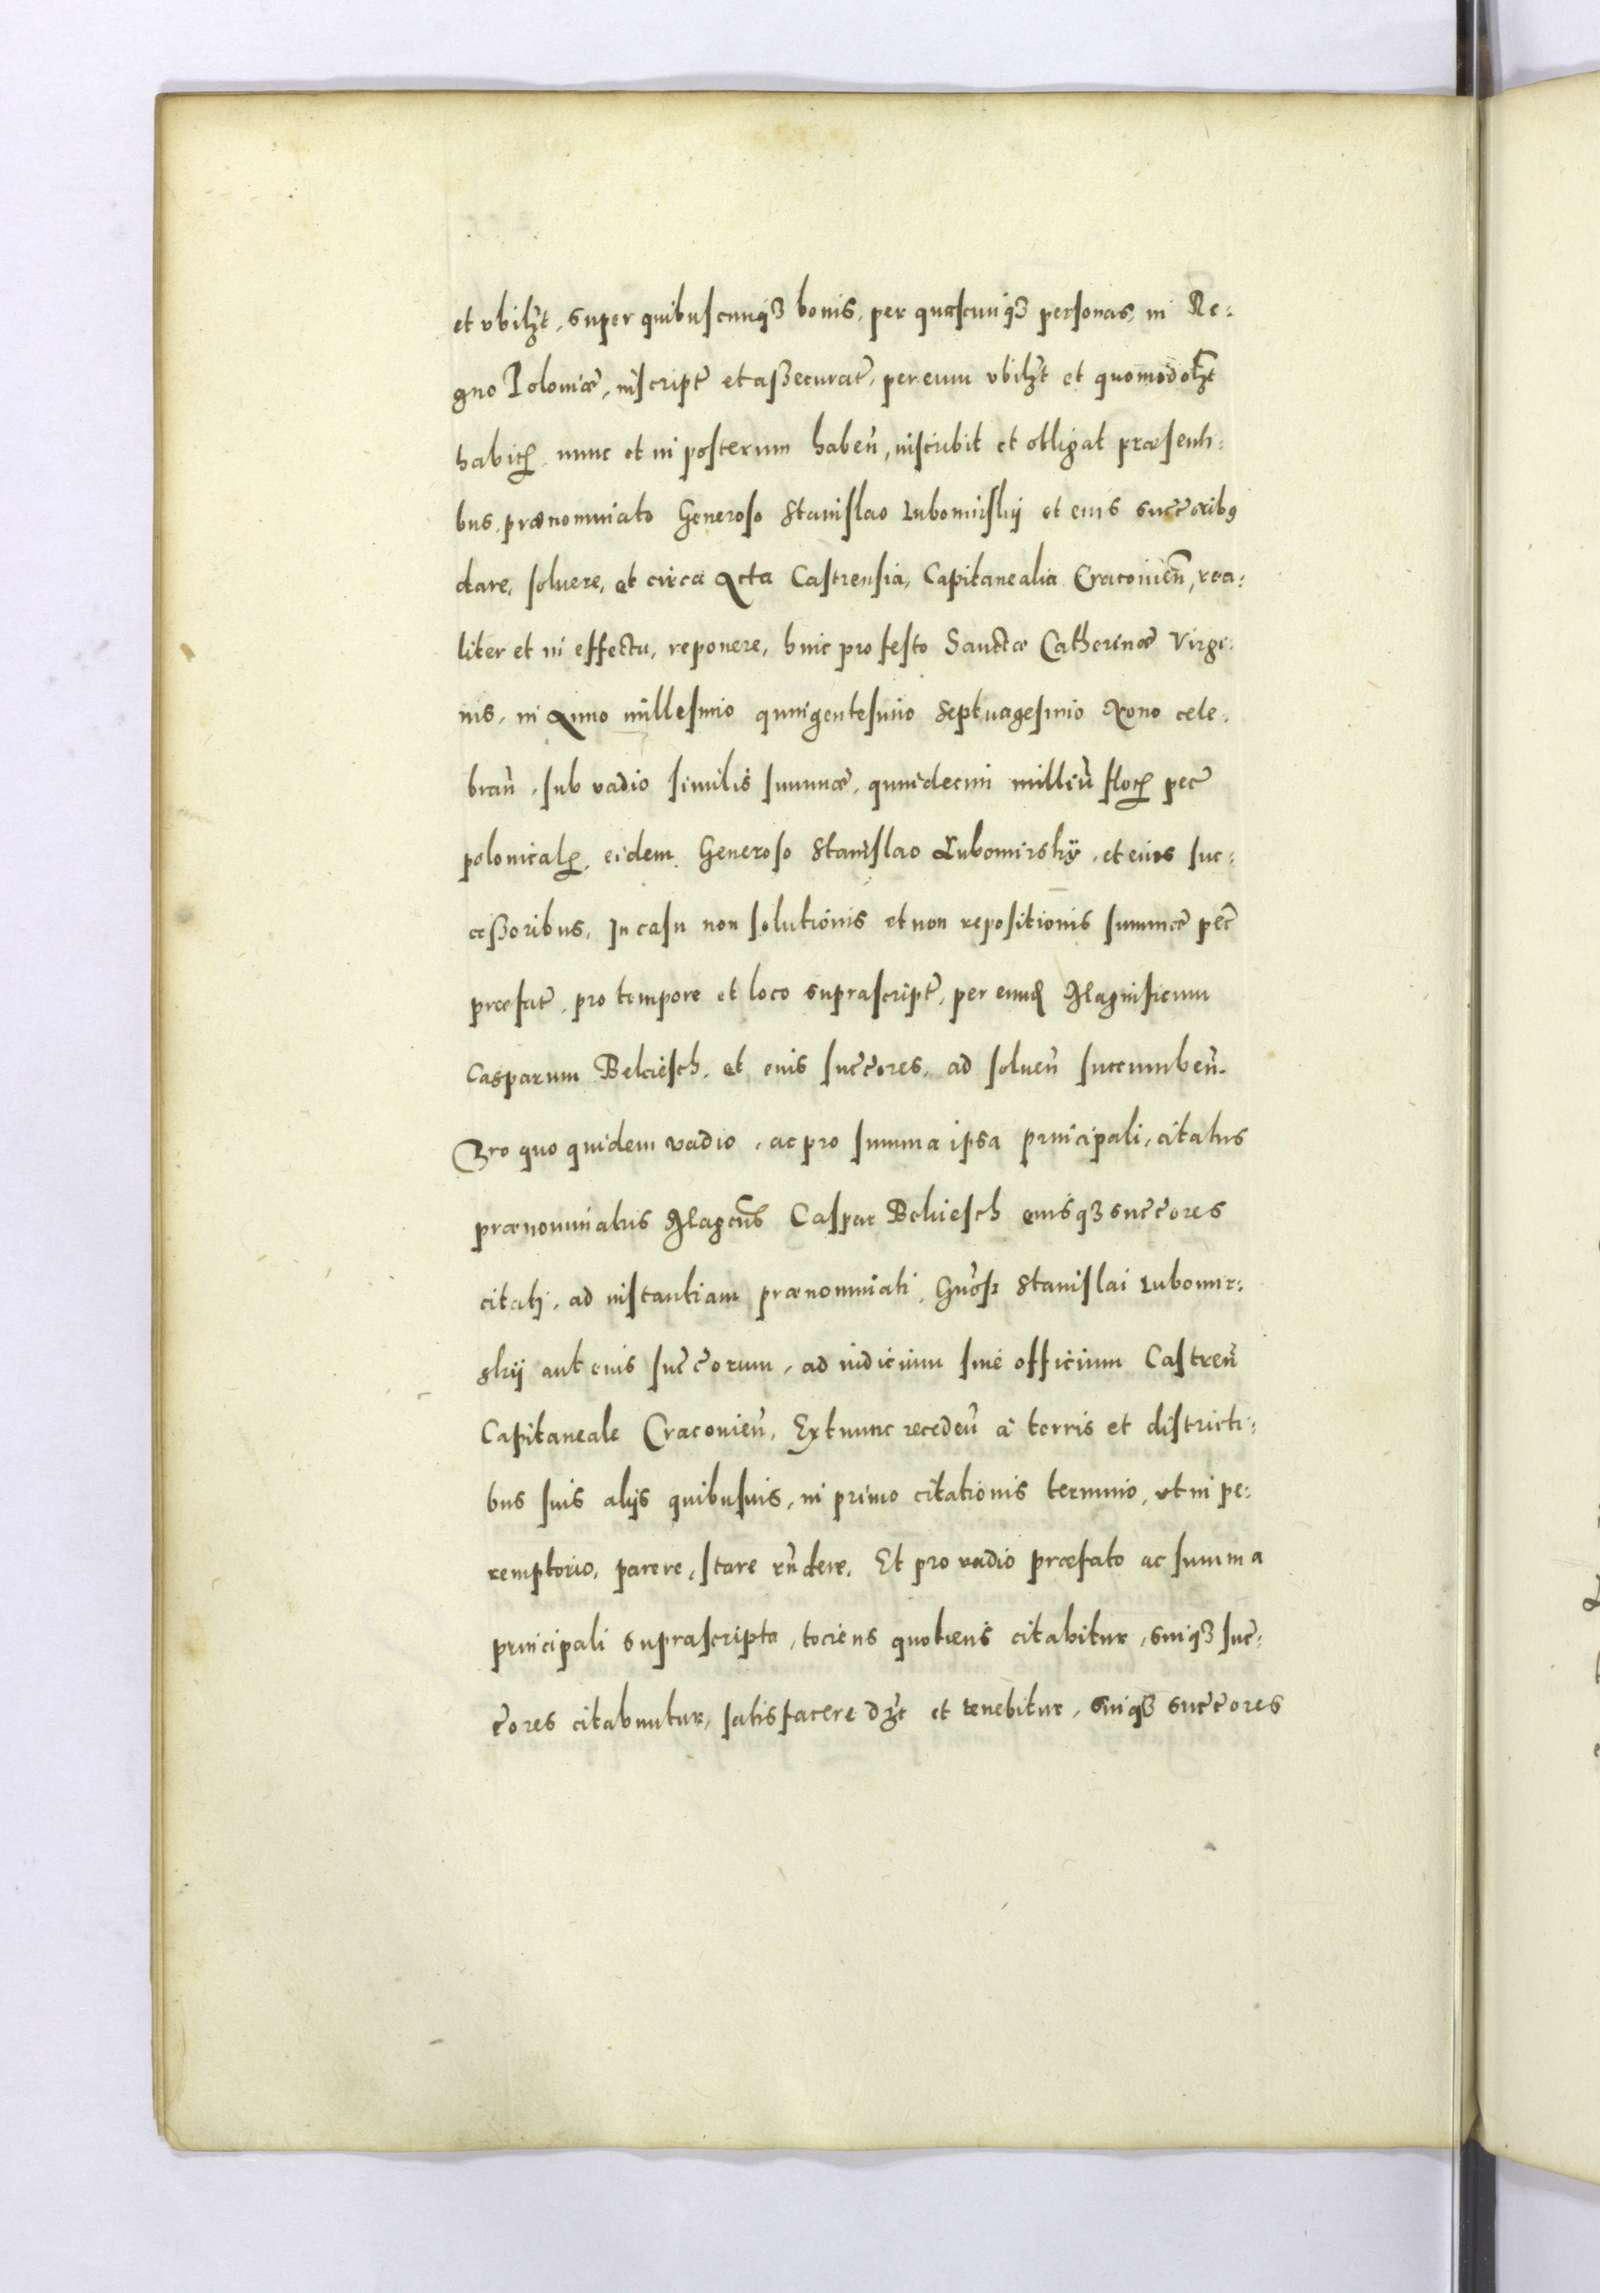 et vbilʒt, super quibuscunqʒ bonis, per quascunqʒ personas, in Re=
gno Poloniæ, inscript̃ et assecurat̃, per eum vbilʒt et quomodolʒt
habitꝝ nunc et in posterum haben̄, inscribit et obligat præsenti=
bus, prænominato Generoso Stanislao Lubomirskij et eius succ̃oribꝰ
dare, soluere, et circa Acta Castrensia, Capitanealia Cracouien̄, rea=
liter et in effectu, reponere, hinc pro festo Sanctæ Catherinæ Virgi=
nis, in Anno millesimo quingentesimo septuagesimo Nono cele=
bran̄, sub vadio similis summæ, quindecim milliū floꝝ pec̃
polonicalꝝ, eidem Generoso Stanislao Lubomirskÿ, et eius suc=
cessoribus, In casu non solutionis et non repositionis summæ pec̃
præfat̃, pro tempore et loco suprascript̃, per eund Magnificum
Casparum Bekiesch, et eius succ̃ores, ad soluen̄ succumben̄.
Pro quo quidem vadio, ac pro summa ipsa principali, citatus
prænominatus Magcūs Caspar Bekiesch eiusqʒ succ̃ores
citati, ad instantiam prænominati, Gn̄osi Stanislai Lubomir=
skij aut eius succ̃orum, ad iudicium siue officium Castren̄
Capitaneale Cracouien̄, Ex tunc receden̄ à terris et districti=
bus suis alijs quibusuis, in primo citationis termino, vt in pe=
remptorio, parere, stare rn̄dere, Et pro vadio præfato ac summa
principali suprascripta, tociens quotiens citabitur, suiqʒ suc̃=
c̃ores citabuntur, satisfacere dʒt et tenebitur, suiqʒ succ̃ores